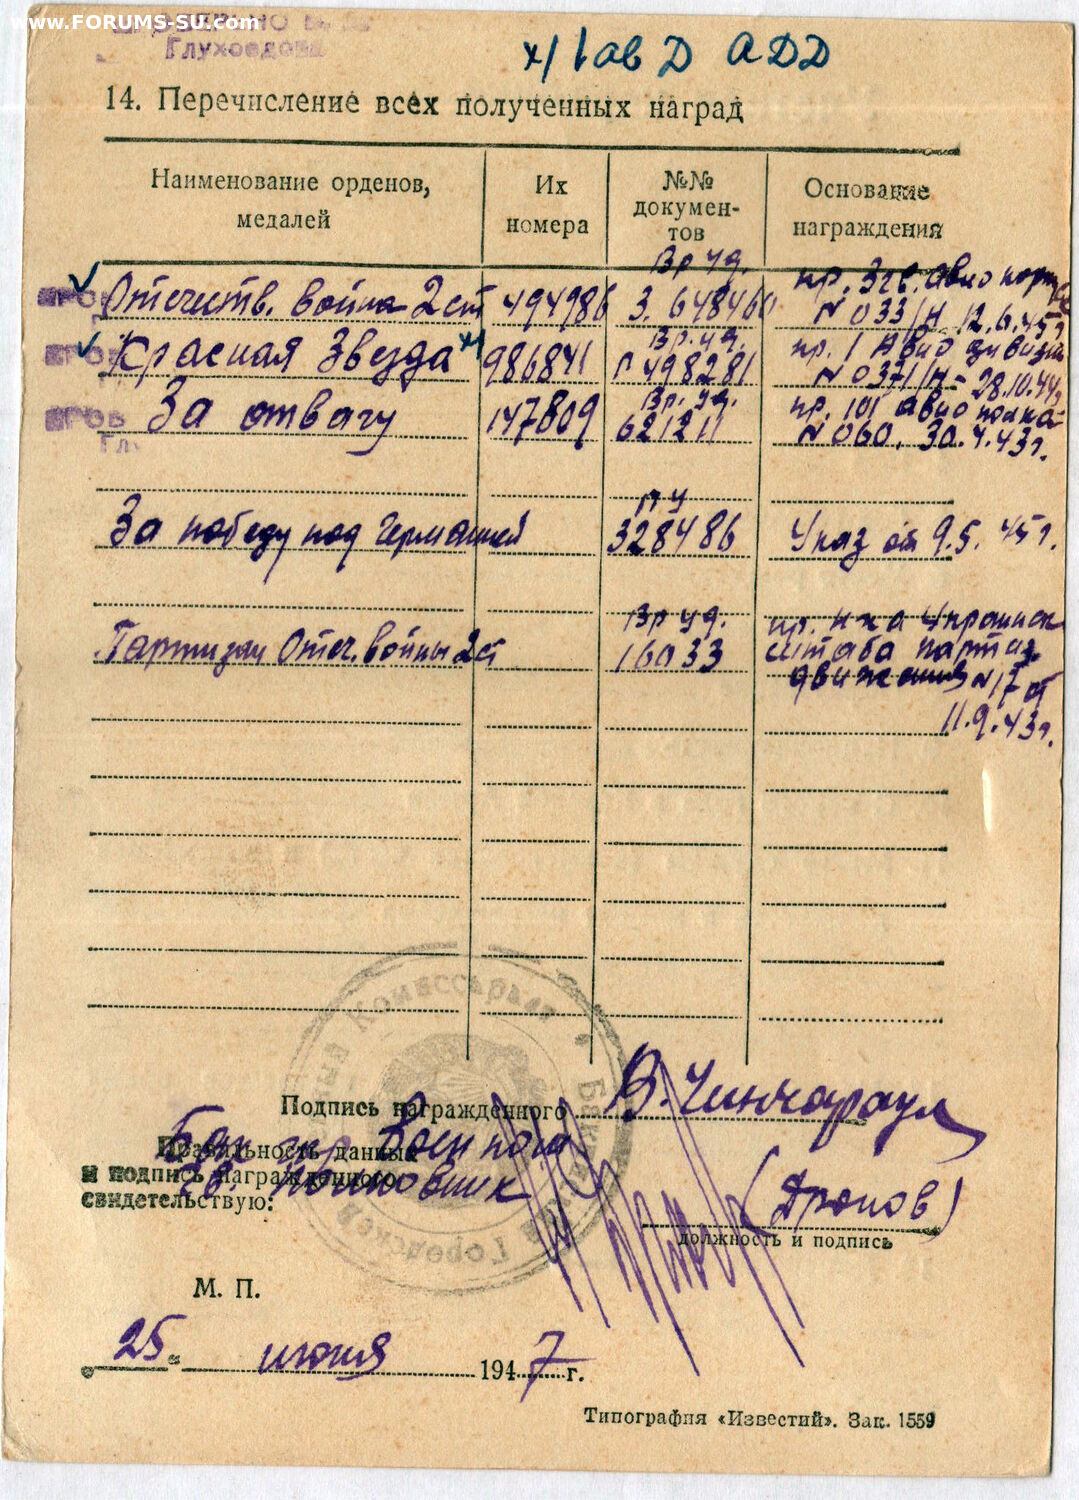 www.FORUMS-SU.com
Глухоедова
х/ 1 ав Д АДД
14. Перечисление всех полученных наград
Наименование орденов, медалей
Их номера
№№ документов
Основание награждения
Отечеств. война 2 ст 494986 Вр уд. З. 648460 пр. 3 гв. авио корпуса N 033/н 12.6.45г
Красная Звезда х/ 986841 Вр. уд. Г 498281 пр. 1 Авио дивизии N 0371/н - 28.10.44г
За отвагу 147809 Вр. уд. 621211 пр. 101 авио полка N 060. 30.4.43г.
За победу над Германией ПУ 328486 Указ от 9.5.45г.
Партизан Отеч. войны 2 ст Вр уд. 16033 пр. н-ка Украинск штаба партиз движения N 17 от 11.9.43г.
Подпись награжденного В. Чинчараул
Правильность данных
и подпись награжденного
свидетельствую:
Бак гор Военком
полковник
(Дронов)
должность и подпись
М. П.
25 июня 1947 г.
Типография «Известий». Зак. 1559